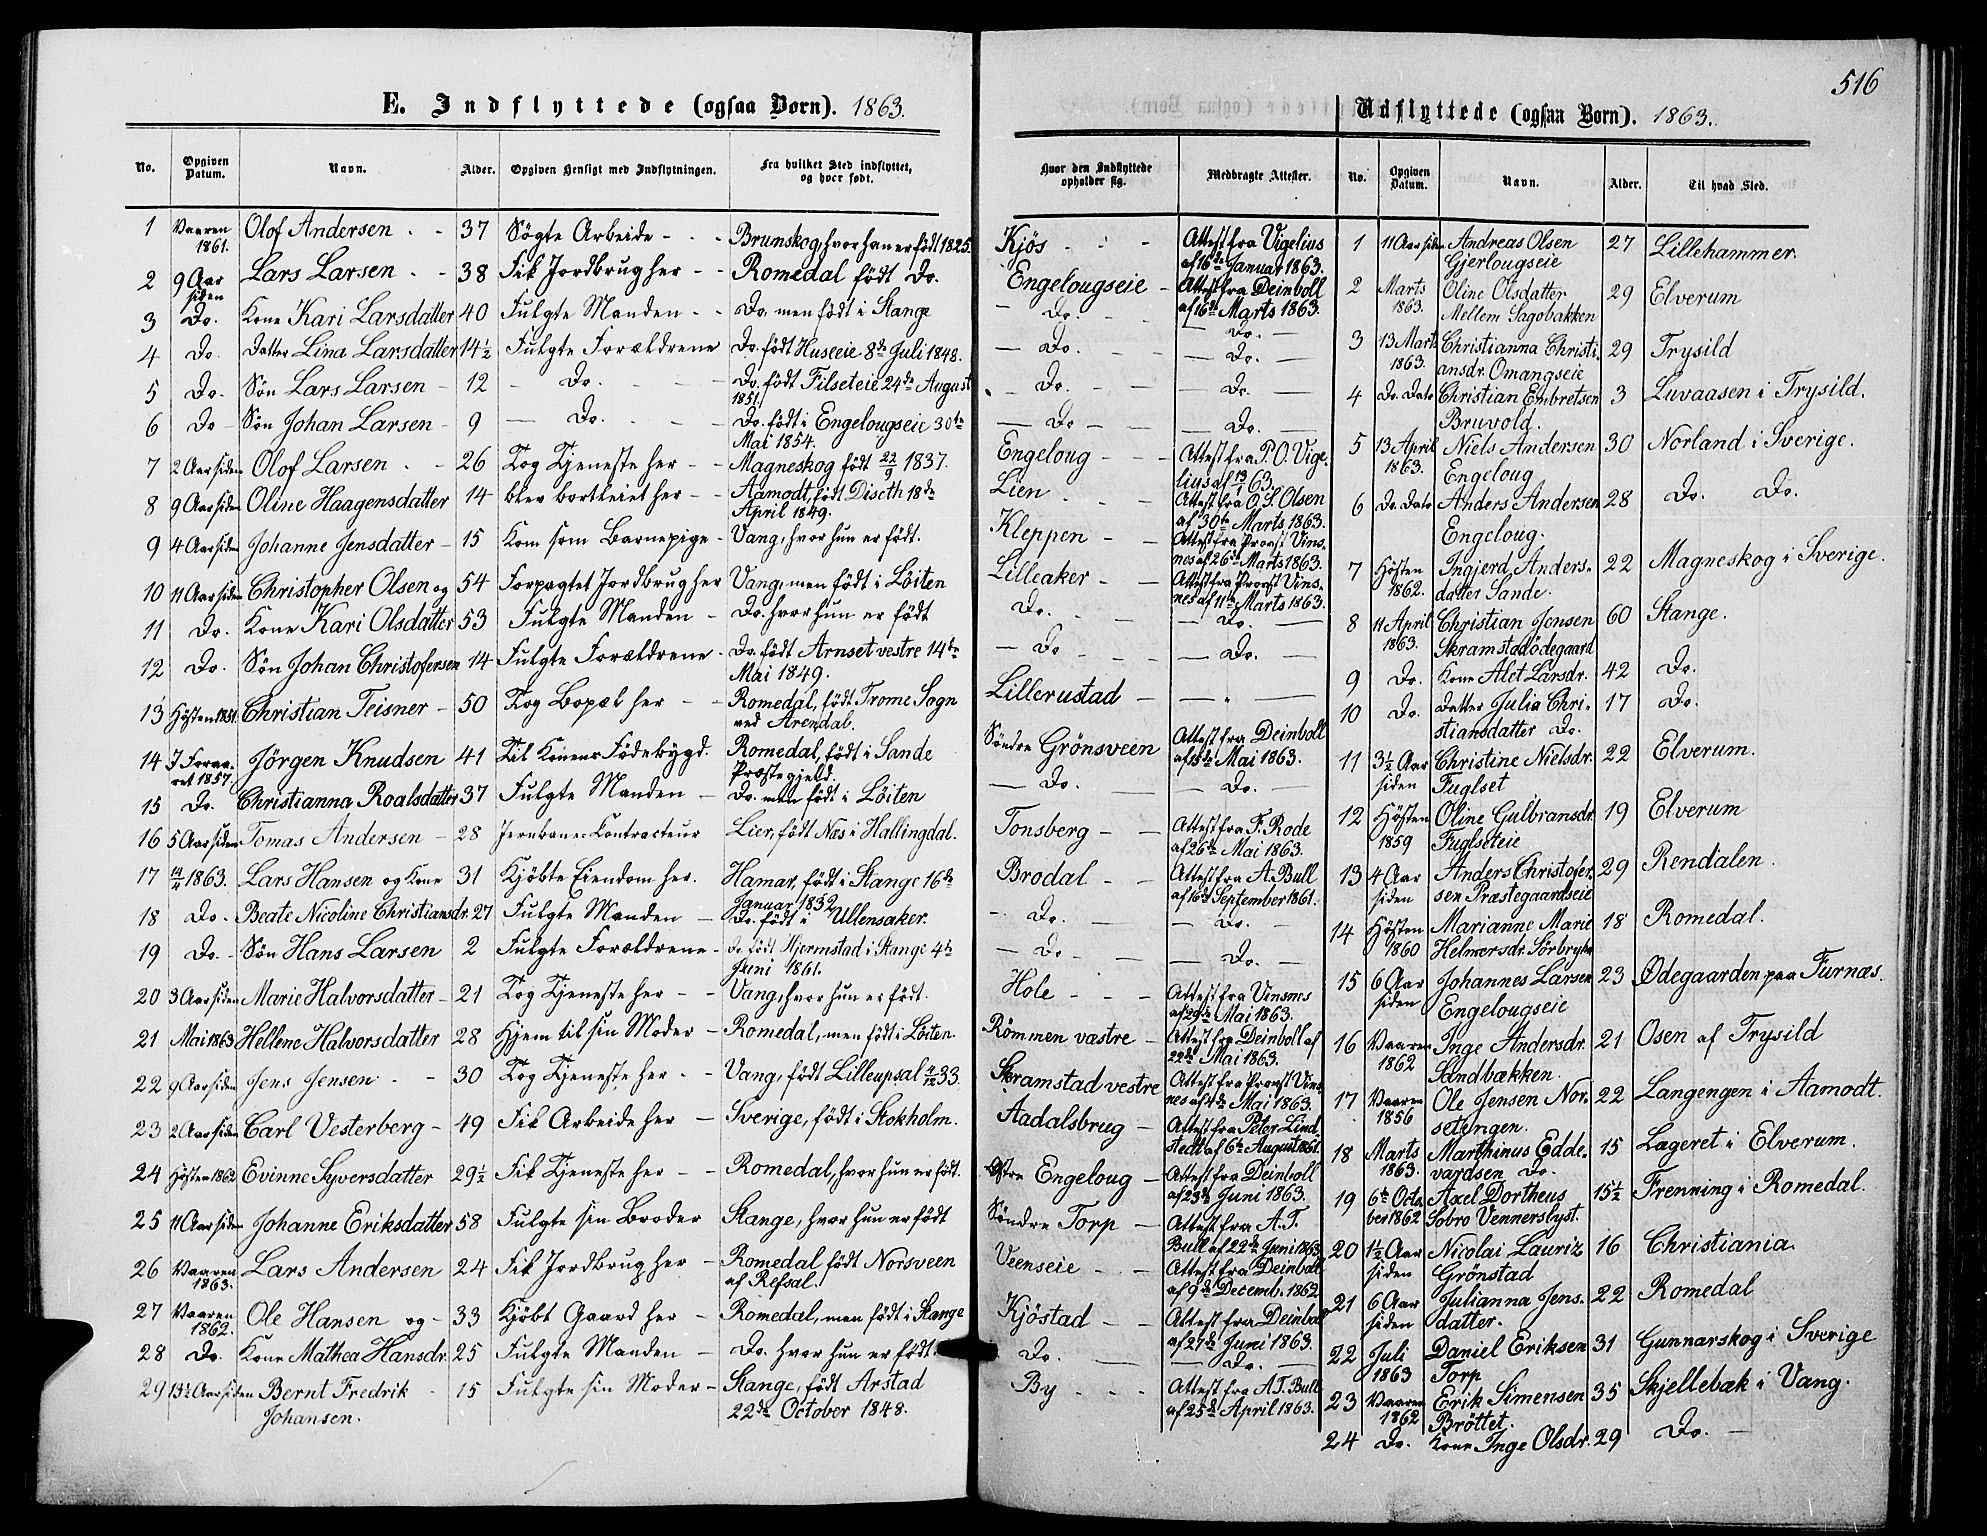 516
E. Indflyttede (ogsaa Børn). 1863.
No. Opgiven Datum. Navn. Alder. Opgiven Hensigt med Indflytningen. Fra hvilket Sted indflyttet, og hvor født.
1 Vaaren 1861. Olof Andersen - - 37 Søgte Arbeide - - - Brunskog, hvor han er født 1825.
2 9 Aar siden Lars Larsen - - 38 Fik Jordbrug her - - Romedal født Do.
3 Do. Kone Kari Larsdatter 40 Fulgte Manden - - Do. men født i Stange
4 Do. Datter Lina Larsdatter 14½ Fulgte Forældrene Do. født Huseeie 8de Juli 1848.
5 Do. Søn Lars Larsen - 12 - Do. - - - Do. født Filseteie 24de August 1851.
6 Do - Søn Johan Larsen - 9 - Do. - - - Do. født i Engelougseie 30te Mai 1854.
7 2 Aar siden Olof Larsen - - 26 Tog Tjeneste her - - Magneskog født 22/9 1837.
8 9 Aar siden Oline Haagensdatter 14 blev bortleiet her - - Aamodt, født Diseth 18de April 1849.
9 4 Aar siden Johanne Jensdatter - 15 Kom som Barnepige - Vang, hvor hun er født.
10 11 Aar siden Christopher Olsen og 54 Forpagtet Jordbrug her Vang, men født i Løiten
11 Do. Kone Kari Olsdatter 53 Fulgte Manden - Do. hvor hun er født
12 Do. Søn Johan Christofersen 14 Fulgte Forældrene - Do. født Arnset vestre 14de Mai 1849.
13 Høsten 1851. Christian Teisner - 50 Tog Bopæl her - - Romedal, født Tromø Sogn ved Arendal.
14 I Foraaret 1857. Jörgen Knudsen 41 Til Konens Fødebygd. Romedal, født i Sande Præstegjeld.
15 Do. Christianna Roalsdatter 37 Fulgte Manden - Do. men født i Løiten
16 5 Aar siden Tomas Andersen - 28 Jernbane-Contracteur Lier, født Næs i Hallingdal.
17 14/4 1863. Lars Hansen og Kone 31 Kjøbte Eiendom her. Hamar, født i Stange 16de Januar 1832
18 Do. Beate Nicoline Christiansdr. 27 Fulgte Manden - Do. født i Ullensaker.
19 Do. - Søn Hans Larsen 2 Fulgte Forældrene - Do født Hjermstad i Stange 4de Juni 1861.
20 3 Aar siden Marie Halvorsdatter - 21 Tog Tjeneste her - - Vang, hvor hun er født.
21 Mai 1863 Hellene Halvorsdatter 28 Hjem til sin Moder - Romedal, men født i Løiten
22 9 Aar siden Jens Jensen - - 30 Tog Tjeneste her - - Vang, født Lilleupsal 4/12 33.
23 2 Aar siden Carl Vesterberg - 49 Fik Arbeide her - Sverige, født i Stokholm.
24 Høsten 1862 Evinne Syversdatter 29½ Fik Tjeneste her - - Romedal, hvor hun er født.
25 11 Aar siden Johanne Eriksdatter 58 Fulgte sin Broder Stange, hvor hun er født
26 Vaaren 1863. Lars Andersen 24 Fik Jordbrug her - Romedal født Norsveen af Refsal.
27 Vaaren 1862. Ole Hansen og - 33 Kjøbt Gaard her - Romedal, men født i Stange
28 Do. Kone Mathea Hansdr. 25 Fulgte Manden - Do. hvor hun er født.
29 13½ Aar siden Bernt Fredrik Johansen. 15 Fulgte sin Moder - Stange, født Arstad 22de October 1848.
Hvor den Indflyttede opholder sig. Medbragte Attester.
Kjøs - - - Attest fra Vigelius af 16de Januar 1863.
Engelougseie - Attest fra Deinboll af 16de Marts 1863.
- Do. - - - Do. -
- Do. - - - Do. -
- Do. - - - Do. -
- Do - - - Do. -
Engeloug - - - Attest fra P. O. Vigelius af 13/1 63.
Lien - - - Attest fra O. S. Olsen af 30te Marts 1863.
Kleppen - - Attest fra Provst Vinsnes af 26de Marts 1863.
Lilleaker - - Attest fra Provst Vinsnes af 11te Marts 1863.
Do. - - - Do. -
- Do - - - Do. -
Lillerustad - - " -
Søndre Grönsveen Attest fra Deinboll af 18de Mai 1863.
- Do. - - Do. -
Tonsberg - - Attest fra F. Rode af 26de Mai 1863.
Brodal - - Attest fra A. Bull af 16de September 1861.
- Do. - - Do. -
- Do - - - Do. -
Hole - - - Attest fra Vinsnes af 29de Mai 1863.
Römmen væstre - Attest fra Deinboll af 22de Mai 1863.
Skramstad vestre Attest fra Provst Vinsnes af 4de Mai 1863.
Aadalsbrug - Attest fra Peter Lindstedt af 6te August 1861.
Østre Engeloug - Attest fra Deinboll af 23de Juni 1863.
Søndre Torp - Attest fra A. T. Bull af 22de Juni 1863.
Veenseie - - Attest fra Deinboll af 9de Decemb. 1862
Kjöstad - - Attest fra Deinboll af 27de Juni 1863.
Do. - - Do. -
By - - - Attest fra A T. Bull af 25de April 1863.
Udflyttede (ogsaa Børn). 1863.
No. Opgiven Datum. Navn. Alder. Til hvad Sted.
1 11 Aar siden Andreas Olsen Gjerlougseie 27 Lillehammer.
2 Marts 1863. Oline Olsdatter Mellem Sagobakken 29 Elverum
3 13 Marts 1863. Christianna Christiansdr. Omangseie 29 Trysild
4 Do. Dato Christian Embretsen Bruvold. 3 Luvaasen i Trysild.
5 13 April 1863. Niels Andersen Engeloug 30 Norland i Sverige.
6 Do. Dato Anders Andersen Engeloug. 28 Do. Do.
7 Høsten 1862. Ingjerd Andersdatter Sande. 22 Magneskog i Sverige.
8 11 April 1863. Christian Jensen Skramstadödegaard 60 Stange.
9 Do. Kone Alet Larsdr. 42 Do.
10 Do. Datter Julia Christiansdatter Do. 17 Do.
11 3½ Aar siden Christine Nielsdr. Fuglset 22 Elverum.
12 Høsten 1859 Oline Gulbransdr. Fuglseteie 19 Elverum
13 4 Aar siden Anders Christofersen Præstegaardseie 29 Rendalen.
14 Høsten 1860 Marianne Marie Helmersdr. Sørbryhn 18 Romedal.
15 6 Aar siden Johannes Larsen Engelougseie 23 Ødegaarden paa Furnæs.
16 Vaaren 1862 Inge Andersdr. Sandbækken. 21 Osen af Trysild
17 Vaaren 1856 Ole Jensen Norsetengen. 22 Langengen i Aamodt.
18 Marts 1863. Marthinus Eddevardsen Do. 15 Lageret i Elverum.
19 6te October 1862 Axel Dortheus Sobro Vennerslyst. 15½ Frenning i Romedal.
20 1½ Aar siden Nicolai Lauriz Grönstad 16 Christiania.
21 6 Aar siden Julianna Jensdatter. 22 Romedal
22 Juli 1863 Daniel Eriksen Torp 31 Gunnarskog i Sverige
23 Vaaren 1862 Erik Simensen Bröttet. 35 Skjellebæk i Vang.
24 Do. Kone Inge Olsdr. 29 Do. -